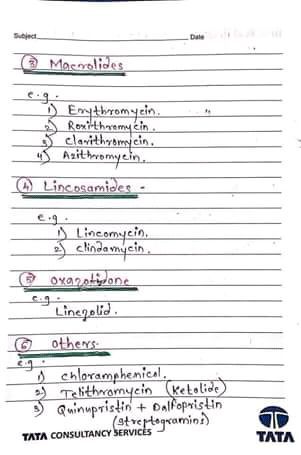 Subject
Date
③ Macrolides
e.g.
1) Erythromycin.
2) Roxithromycin.
3) Clarithromycin.
4) Azithromycin.
④ Lincosamides -
e.g.
1) Lincomycin.
2) clindamycin.
⑤ Oxazolidone
e.g.
Linezolid.
⑥ others-
e.g.
1) chloramphenicol.
2) Telithromycin (Ketolide)
3) Quinupristin + Dalfopristin
(streptogramins)
TATA CONSULTANCY SERVICES
TATA